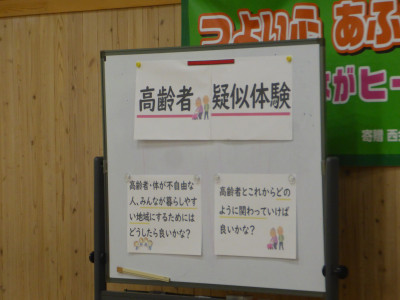 つよい心 あふ
がヒー
寄贈 西
高齢者 疑似体験
高齢者・体が不自由な
人、みんなが暮らしやす
い地域にするためには
どうしたら良いかな？
高齢者とこれからどの
ように関わっていけば
良いかな？